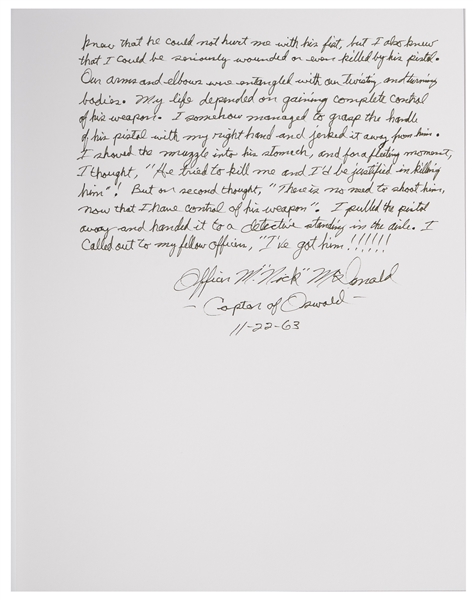 knew that he could not hurt me with his fist, but I also knew
that I could be seriously wounded or even killed by his pistol.
Our arms and elbows were entangled with our twisting and turning
bodies. My life depended on gaining complete control
of his weapon! I somehow managed to grasp the handle
of his pistol with my right hand and jerked it away from him.
I shoved the muzzle into his stomach, and for a fleeting moment,
I thought, "He tried to kill me and I'd be justified in killing
him"! But on second thought, "There is no need to shoot him,
now that I have control of his weapon". I pulled the pistol
away and handed it to a detective standing in the aisle. I
called out to my fellow officers, "I've got him!!!!!!
Officer M. "Nick" McDonald
- Captor of Oswald -
11-22-63